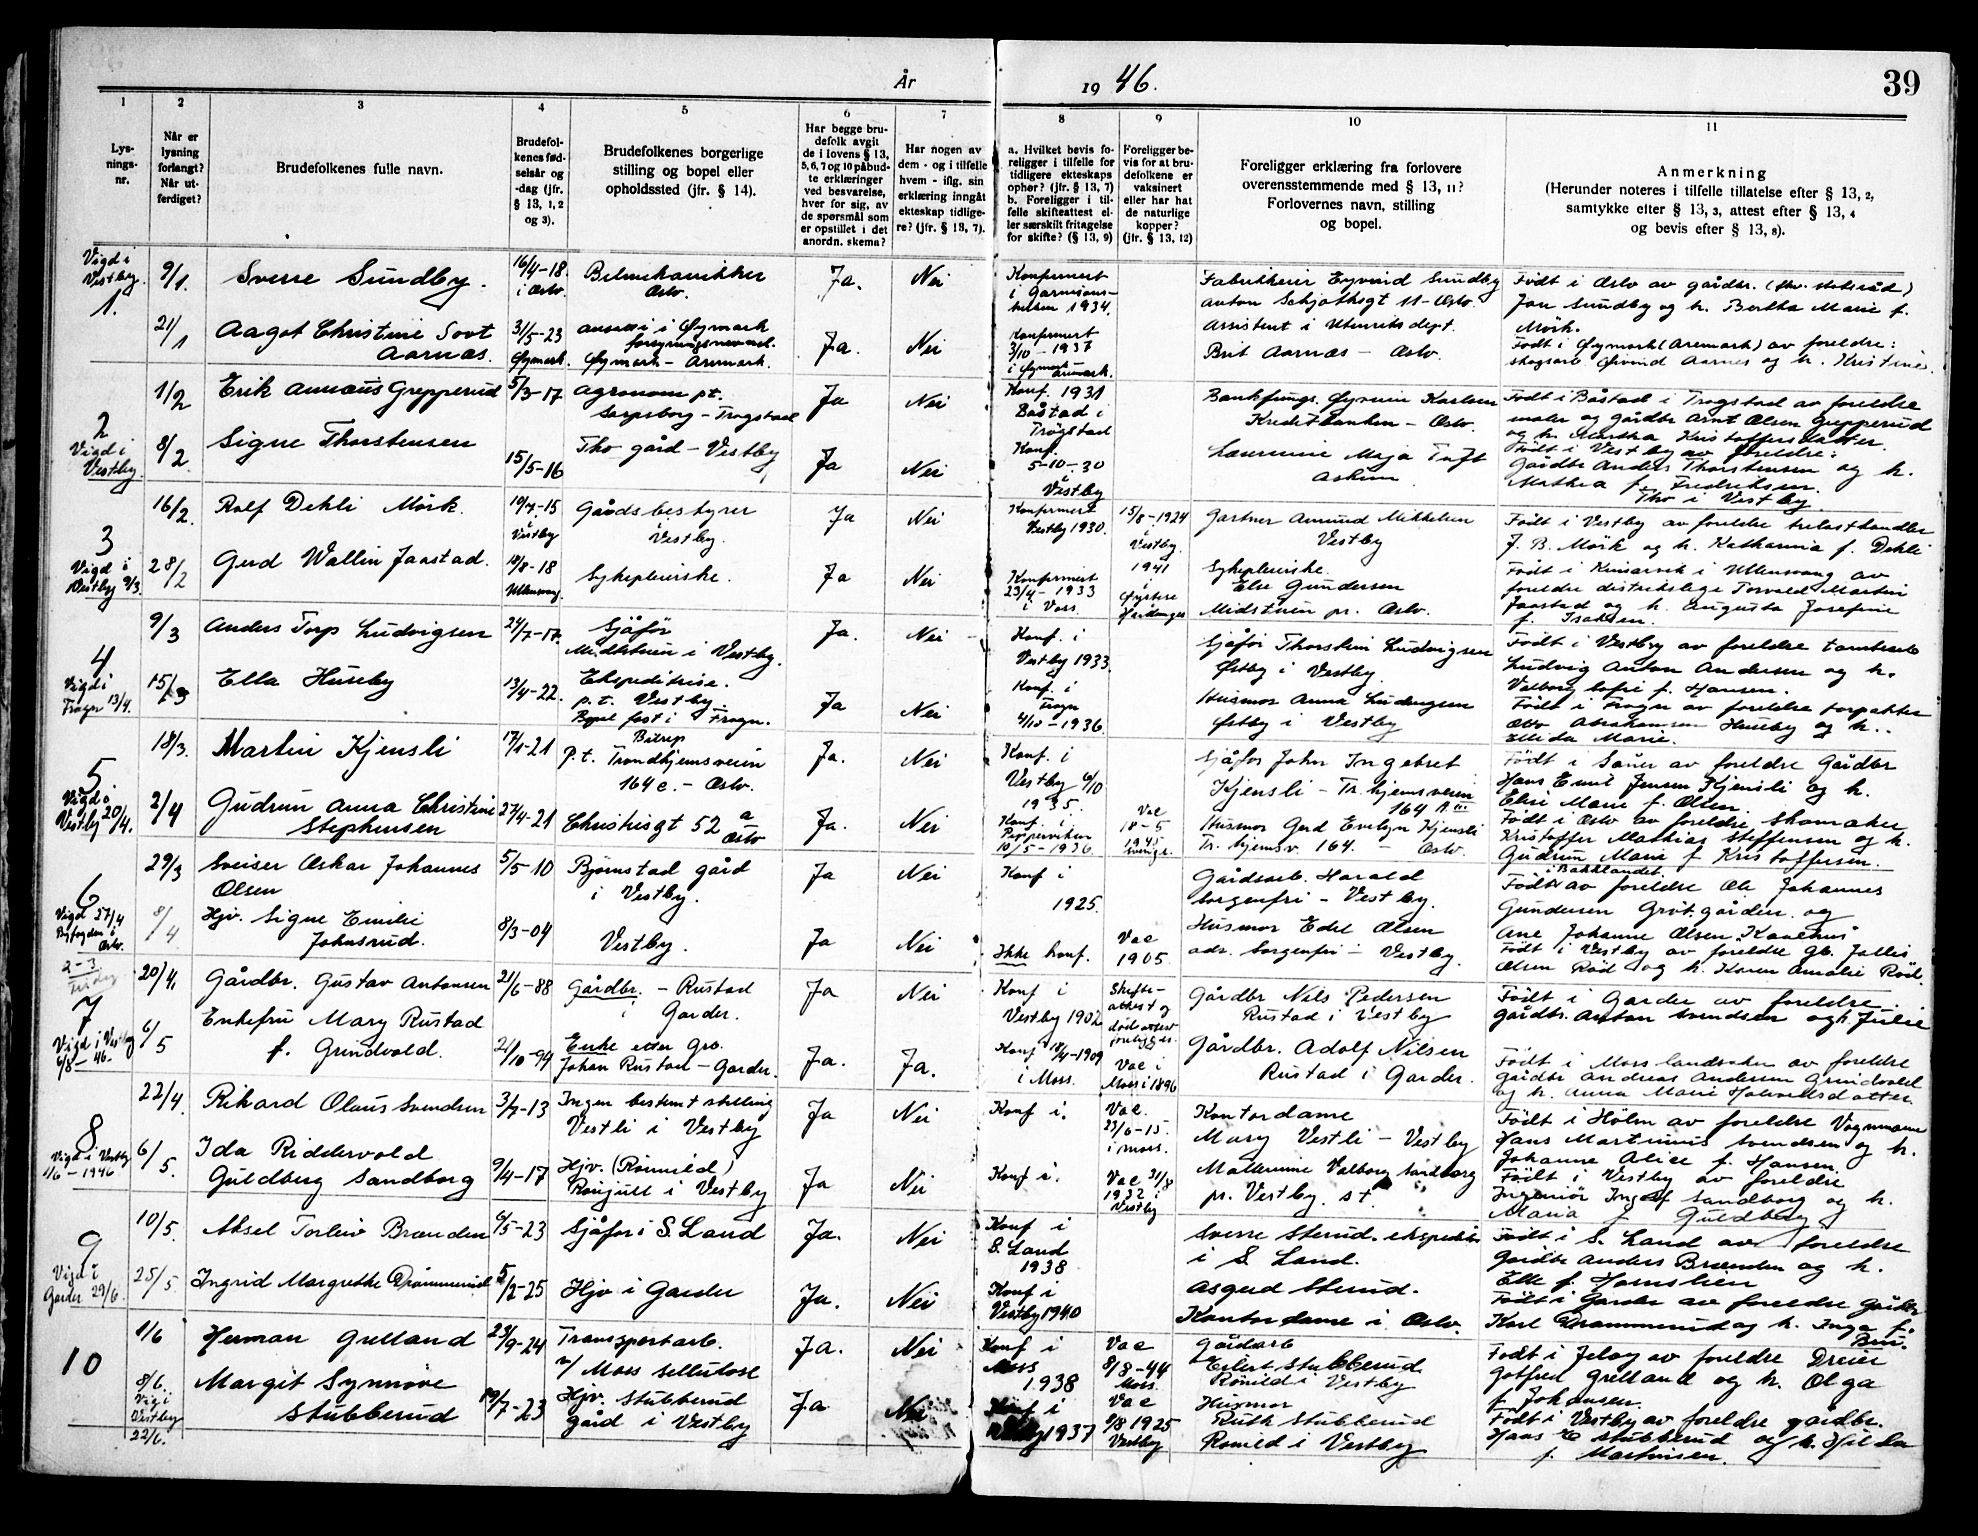 År 19 46.
39
1
2
3
4
5
6
7
8
9
10
11
Lys-
nings-
nr.
Når er
lysning
forlangt?
Når ut-
ferdiget?
Brudefolkenes fulle navn.
Brudefol-
kenes fød-
selsår og
-dag (jfr.
§ 13, 1, 2
og 3).
Brudefolkenes borgerlige
stilling og bopel eller
opholdssted (jfr. § 14).
Har begge bru-
defolk avgit
de i lovens § 13,
5, 6, 7 og 10 påbud-
te erklæringer
ved besvarelse,
hver for sig, av
de spørsmål som
er opstillet i det
anordn. skema?
Har nogen av
dem - og i tilfelle
hvem - iflg. sin
erklæring inngått
ekteskap tidlige-
re? (jfr. § 13, 7).
a. Hvilket bevis fo-
religger i tilfelle for
tidligere ekteskaps
ophør? (jfr. § 13, 7)
b. Foreligger i til-
felle skifteattest el-
ler særskilt fritagelse
for skifte? (§ 13, 9)
Foreligger be-
vis for at bru-
defolkene er
vaksinert
eller har hat
de naturlige
kopper?
(jfr. § 13, 12)
Foreligger erklæring fra forlovere
overensstemmende med § 13, 11?
Forlovernes navn, stilling
og bopel.
Anmerkning
(Herunder noteres i tilfelle tillatelse efter § 13, 2,
samtykke efter § 13, 3, attest efter § 13, 4
og bevis efter § 13, 8).
Vigd i
Vestby.
1.
9/1.
Sverre Sundby.
16/4-18.
i Oslo.
Bilmekaniker
Oslo.
Ja.
Nei
Konfirmert
i Garnisons-
kirken 1934.
Fabrikkeier Eyvind Sundby
Anton Schjøthsgt 11 - Oslo.
Født i Oslo av gårdbr. (
Jon Sundby og h. Bertha Marie f.
Mörk.
21/1
Aagot Christine Soot
Aarnæs.
31/5-23
Øymark.
ansatt i Øymark
forsyningsnevnd.
Øymark - Aremark.
Ja.
Nei
Konfirmert
3/10 - 1937
i Øymark
Aremark.
Assistent i Utenriksdept.
Brit Aarnæs - Oslo.
Født i Øymark (Aremark) av foreldre:
skogsarb. Øivind Aarnes og h. Kristine.
2
Vigd i
Vestby.
1/2
Erik Annæus Grepperud
5/3-17
Agronom pt.
Sarpsborg - Trøgstad
Ja
Nei
Konf. 1931
Båstad i
Trøgstad
Bankfungs. Øyvinn Karlsen
Kreditbanken - Oslo.
Født i Båstad i Trøgstad av foreldre
maler og gårdbr Arnt Olsen Grepperud
og h. Martha Kristoffersdatter.
8/2.
Signe Thorstensen
15/5-16
Tho gård - Vestby
Ja
Nei
Konf.
5-10-30
Vestby
Laurentine Maja Toft
Askim
Født i Vestby av foreldre:
Gårdbr Anders Thorstensen og h.
Mathea f. Fredriksen.
Tho i Vestby.
3
Vigd i
Vestby 9/3.
16/2.
Rolf Dehli Mörk.
19/7-15
Vestby
Gårdsbestyrer
i Vestby.
Ja
Nei
Konfirmert
Vestby 1930.
15/8-1924
Vestby.
Gartner Amund Mikkelsen
Vestby
Født i Vestby av foreldre trelasthandler
J. B. Mörk og h. Katharina f. Dehli
28/2
Gerd Wallin Jaastad.
10/8-18
Ullensvang.
Sykepleierske.
Ja
Nei
Konfirmert
23/4 - 1933
i Voss.
1941
i
Øystese
Hardanger
Sykepleierske.
Else Gundersen
Midstuen pr. Oslo.
Født i Kinsarvik i Ullensvang av
foreldre distriktslege Torvald Martin
Jaastad og h. Augusta Josefine
f. Isaksen.
4
Vigd i
Frogn 13/4.
9/3
Anders Torp Ludvigsen
24/7-17.
Sjåfør
i Vestby.
Ja.
Nei
Konf. i
Vestby 1933.
Sjåfør Thorstein Ludvigsen
Østby i Vestby.
Født i Vestby av foreldre tomtearb
Ludvig Anton Andersen og h.
Valborg Sofie f. Hansen.
15/3
Ella Huseby
13/4-22.
Ekspeditrise.
p.t. Vestby.
Bopel fast i Frogn.
Ja
Nei
Konf. i
Frogn
4/10-1936.
Husmor Anna Ludvigsen
Østby i Vestby
Født i Frogn av foreldre forpakter
Otto Abrahamsen Huseby og h.
Marie.
5
Vigd i
Vestby 20/4.
18/3.
Martin Kjensli
17/1-21
Bitrep
p.t. Trondhjemsveien
164 c. - Oslo.
Ja.
Nei
Konf. i
Vestby 6/10
1935.
Sjåfør John Ingebret
Kjensli - Tr.hjemsveien
164 A III
Født i Såner av foreldre Gårdbr
Hans Emil Jensen Kjensli og h.
Elise Marie f. Olsen.
2/4
Gudrun Anna Christine
Stephensen
27/4-21
Christiesgt 52 a
Oslo
Ja.
Nei
Konf. i
Pipervicken
10/5-1936.
Vac
18-5
1945
Husmor Gerd Evelyn Kjensli
Tr.hjemsv. 164. - Oslo.
Født i Oslo av foreldre skomaker
Kristoffer Mathias Steffensen og h.
Gudrun Marie f Kristoffersen.
6
Vigd 27/4
Byfogden i
Oslo.
29/3
Sverser Oskar Johannes
Olsen
5/5-10
Bjørnstad gård
i Vestby.
Ja
Nei
Konf i
1925.
Gårdsarb. Harald
Sorgenfri - Vestby.
i Bakklandet.
Født av foreldre Ole Johannes
Gundersen og
Ane Johanne Olsen
8/4
Hjv. Signe Emilie
Johnsrud.
8/3-04
Vestby.
Ja
Nei
Ikke konf.
Vac
1905.
Husmor Edel Olsen
adr. Sorgenfri - Vestby.
Født i Vestby av foreldre gb.
Olsen Rød og h. Karen Amalie Rød.
2-3
7
Vigd i Vestby
6/8 - 46.
20/4.
Gårdbr. Gustav Antonsen
21/6-88
Gårdbr. - Rustad
i Garder.
Ja
Nei
Konf i
Vestby 1902
Skifte-
attest og
dødsattest
foreligger.
Gårdbr Nils Pedersen
Rustad i Vestby
Født i Garder av foreldre
gårdbr. Anton Svendsen og h Julie
6/5
Enkefru Mary Rustad
f. Grundvold.
21/10-94
Enke etter gb.
Johan Rustad - Garder.
Ja.
Ja.
Konf 18/4-1909
i Moss.
Vac i
Moss i 1896
Gårdbr. Adolf Nilsen
Rustad i Garder.
Født i Moss landsokn av foreldre
gårdbr Andreas Andersen Grundvold
og h. Anna Marie Halvorsdatter
8
Vigd i Vestby
1/6 - 1946
22/4.
Rikard Olaus Svendsen
3/7-13
Ingen bestemt stilling
Vestli i Vestby
Ja
Nei
Konf i.
Vac.
23/6-15.
i Moss.
Kontordame
Mary Vestli - Vestby
Født i Hölen av foreldre Vognmann
Hans Martinius Svendsen og h.
Johanne Alice f. Hansen.
6/5.
Ida Riddervold
Guldberg Sandborg
9/4-17
Hjv. (Römeld)
i Vestby
Ja
Nei
Konf i.
Vac 31/8
1932 i
Vestby
Valborg Sandborg
pr. Vestby st.
Født i Vestby av foreldre
Ingeniør Sandborg og h.
Maria f Guldberg
9
Vigd i
Garder 29/6.
10/5.
Aksel Torleiv Brænden
6/5-23
Sjåfør i S. Land
Ja.
Nei
Konf i
S. Land
1938
Sverre Sterud. ekspeditør
i S. Land.
Født i S. Land av foreldre
Gårdbr Anders Brænden og h.
Elle f. Hamslien
25/5
Ingrid Margrethe Drömmerud
5/2-25
Hjv i Garder
Ja.
Nei
Konf i
Vestby 1940
Asgerd Sterud.
Kontordame i Oslo.
Født i Garder av foreldre Gårdbr
Karl Drömmerud og h. Inga f.
Bru.
10
1/6
Herman Grelland
23/9-24
Transportarb.
v/ Moss sellulose
Ja.
Nei
Konf i
Moss
1938
Vac
8/8-44
Moss.
Gårdarb
Stubberud
Römeld i Vestby
Født i Jeløy av foreldre Dreier
Gotfred Grelland og h. Olga
f. Johansen.
8/6.
Vigd i
Vestby
22/6.
Margit Synnöve
Stubberud
19/7-23
Hjv. Stubberud
gård i Vestby
Ja
Nei
Konf i
Vestby 1937
Vac
9/8 1925
Vestby
Husmor
Ruth Stubberud
Römeld i Vestby
Født i Vestby av foreldre gårdbr.
Hans E Stubberud og h. Hilda
f. Martinsen.